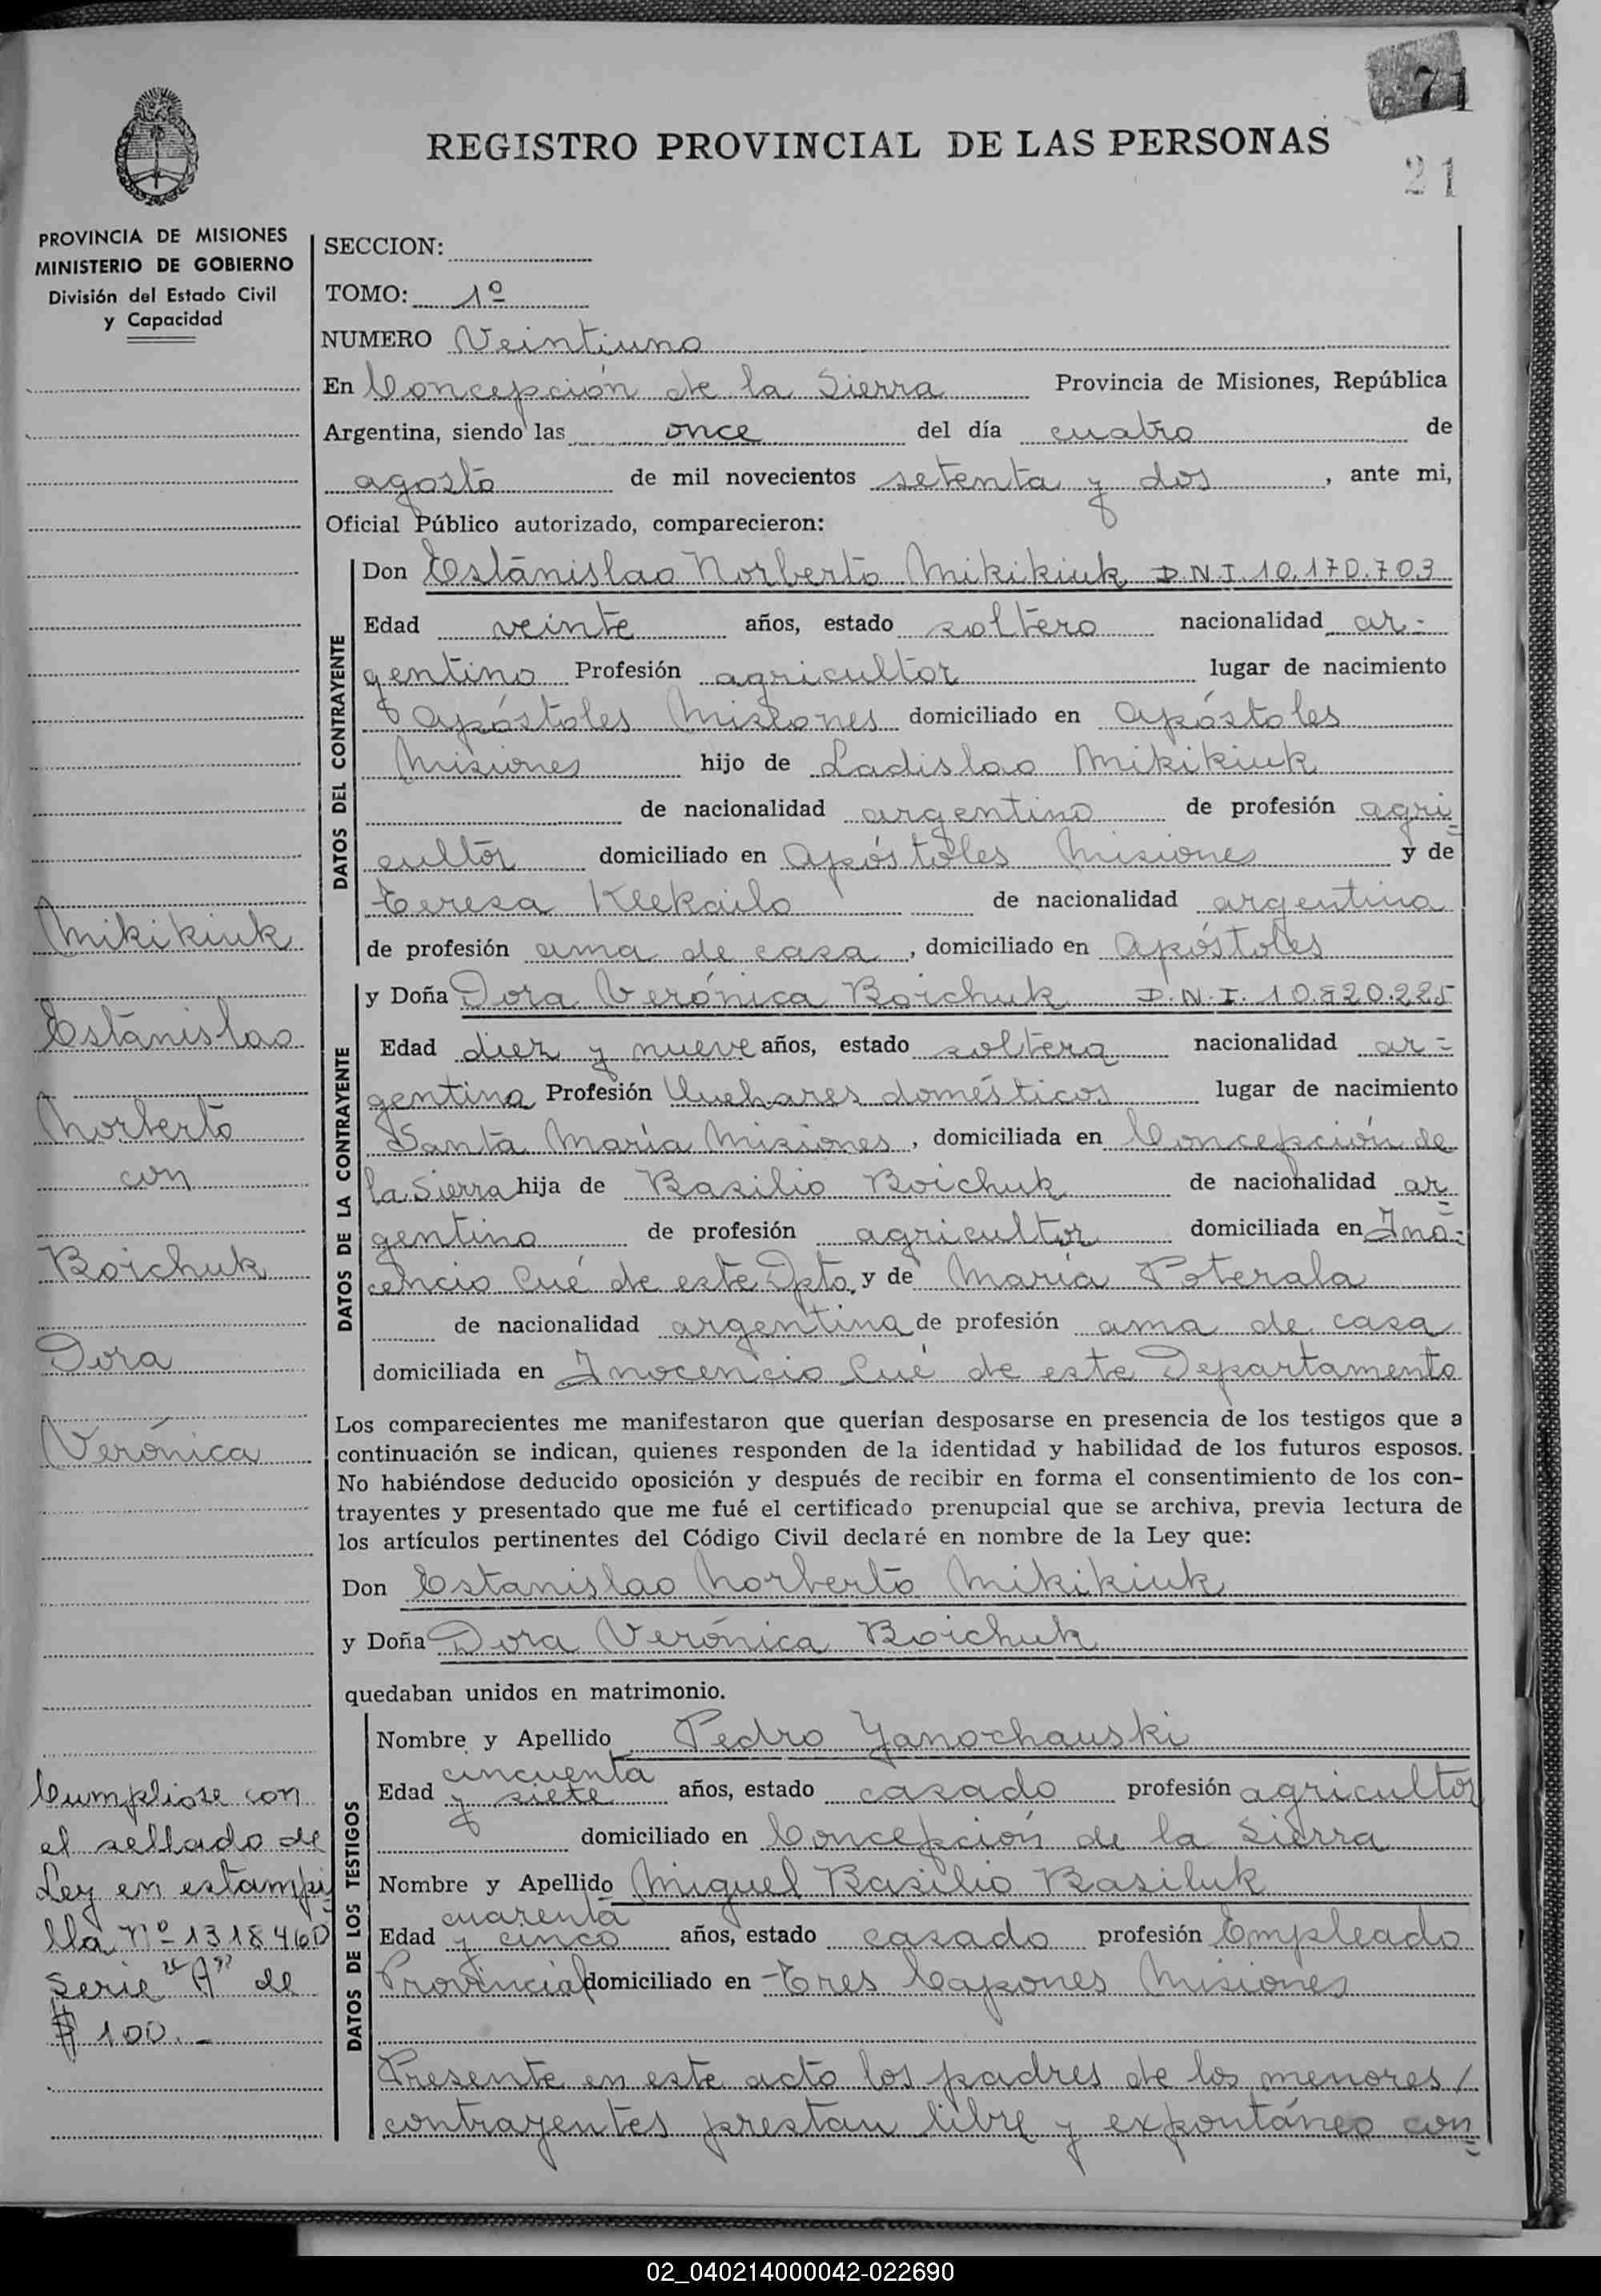 71
REGISTRO PROVINCIAL DE LAS PERSONAS
21
PROVINCIA DE MISIONES
MINISTERIO DE GOBIERNO
División del Estado Civil
y Capacidad
SECCION:
TOMO: 1º
NUMERO Veintiuno
En Concepción de la Sierra Provincia de Misiones, República
Argentina, siendo las once del día cuatro de
agosto de mil novecientos setenta y dos, ante mi,
Oficial Público autorizado, comparecieron:
DATOS DEL CONTRAYENTE
Don Estanislao Norberto Mikikiuk D.N.I. 10.170.703
Edad veinte años, estado soltero nacionalidad ar-
gentino Profesión agricultor lugar de nacimiento
Apóstoles Misiones domiciliado en Apóstoles
Misiones hijo de Ladislao Mikikiuk
de nacionalidad argentino de profesión agri
cultor domiciliado en Apóstoles Misiones y de
Teresa Klekailo de nacionalidad argentina
de profesión ama de casa, domiciliado en Apóstoles
DATOS DE LA CONTRAYENTE
y Doña Dora Verónica Boichuk D.N.I. 10.820.225
Edad diez y nueve años, estado soltera nacionalidad ar=
gentina Profesión Quehares domésticos lugar de nacimiento
Santa María Misiones, domiciliada en Concepción de
la Sierra hija de Basilio Boichuk de nacionalidad ar=
gentino de profesión agricultor domiciliada en Ino=
cencio Cué de este Dpto. y de María Poterala
de nacionalidad argentina de profesión ama de casa
domiciliada en Inocencio Cué de este Departamento
Los comparecientes me manifestaron que querían desposarse en presencia de los testigos que a
continuación se indican, quienes responden de la identidad y habilidad de los futuros esposos.
No habiéndose deducido oposición y después de recibir en forma el consentimiento de los con-
trayentes y presentado que me fué el certificado prenupcial que se archiva, previa lectura de
los artículos pertinentes del Código Civil declaré en nombre de la Ley que:
Don Estanislao Norberto Mikikiuk
y Doña Dora Verónica Boichuk
quedaban unidos en matrimonio.
DATOS DE LOS TESTIGOS
Nombre y Apellido Pedro Yanochauski
cincuenta
Edad y siete años, estado casado profesión agricultor
domiciliado en Concepción de la Sierra
Nombre y Apellido Miguel Basilio Basiluk
cuarenta
Edad y cinco años, estado casado profesión Empleado
Provincial domiciliado en Tres Capones Misiones
Presente en este acto los padres de los menores/
contrayentes prestan libre y expontáneo con=
Mikikiuk
Estanislao
Norberto
con
Boichuk
Dora
Verónica
Cumpliose con
el sellado de
Ley en estampi
lla nº 1318460
Serie "A" de
$ 100.-
02_040214000042-022690